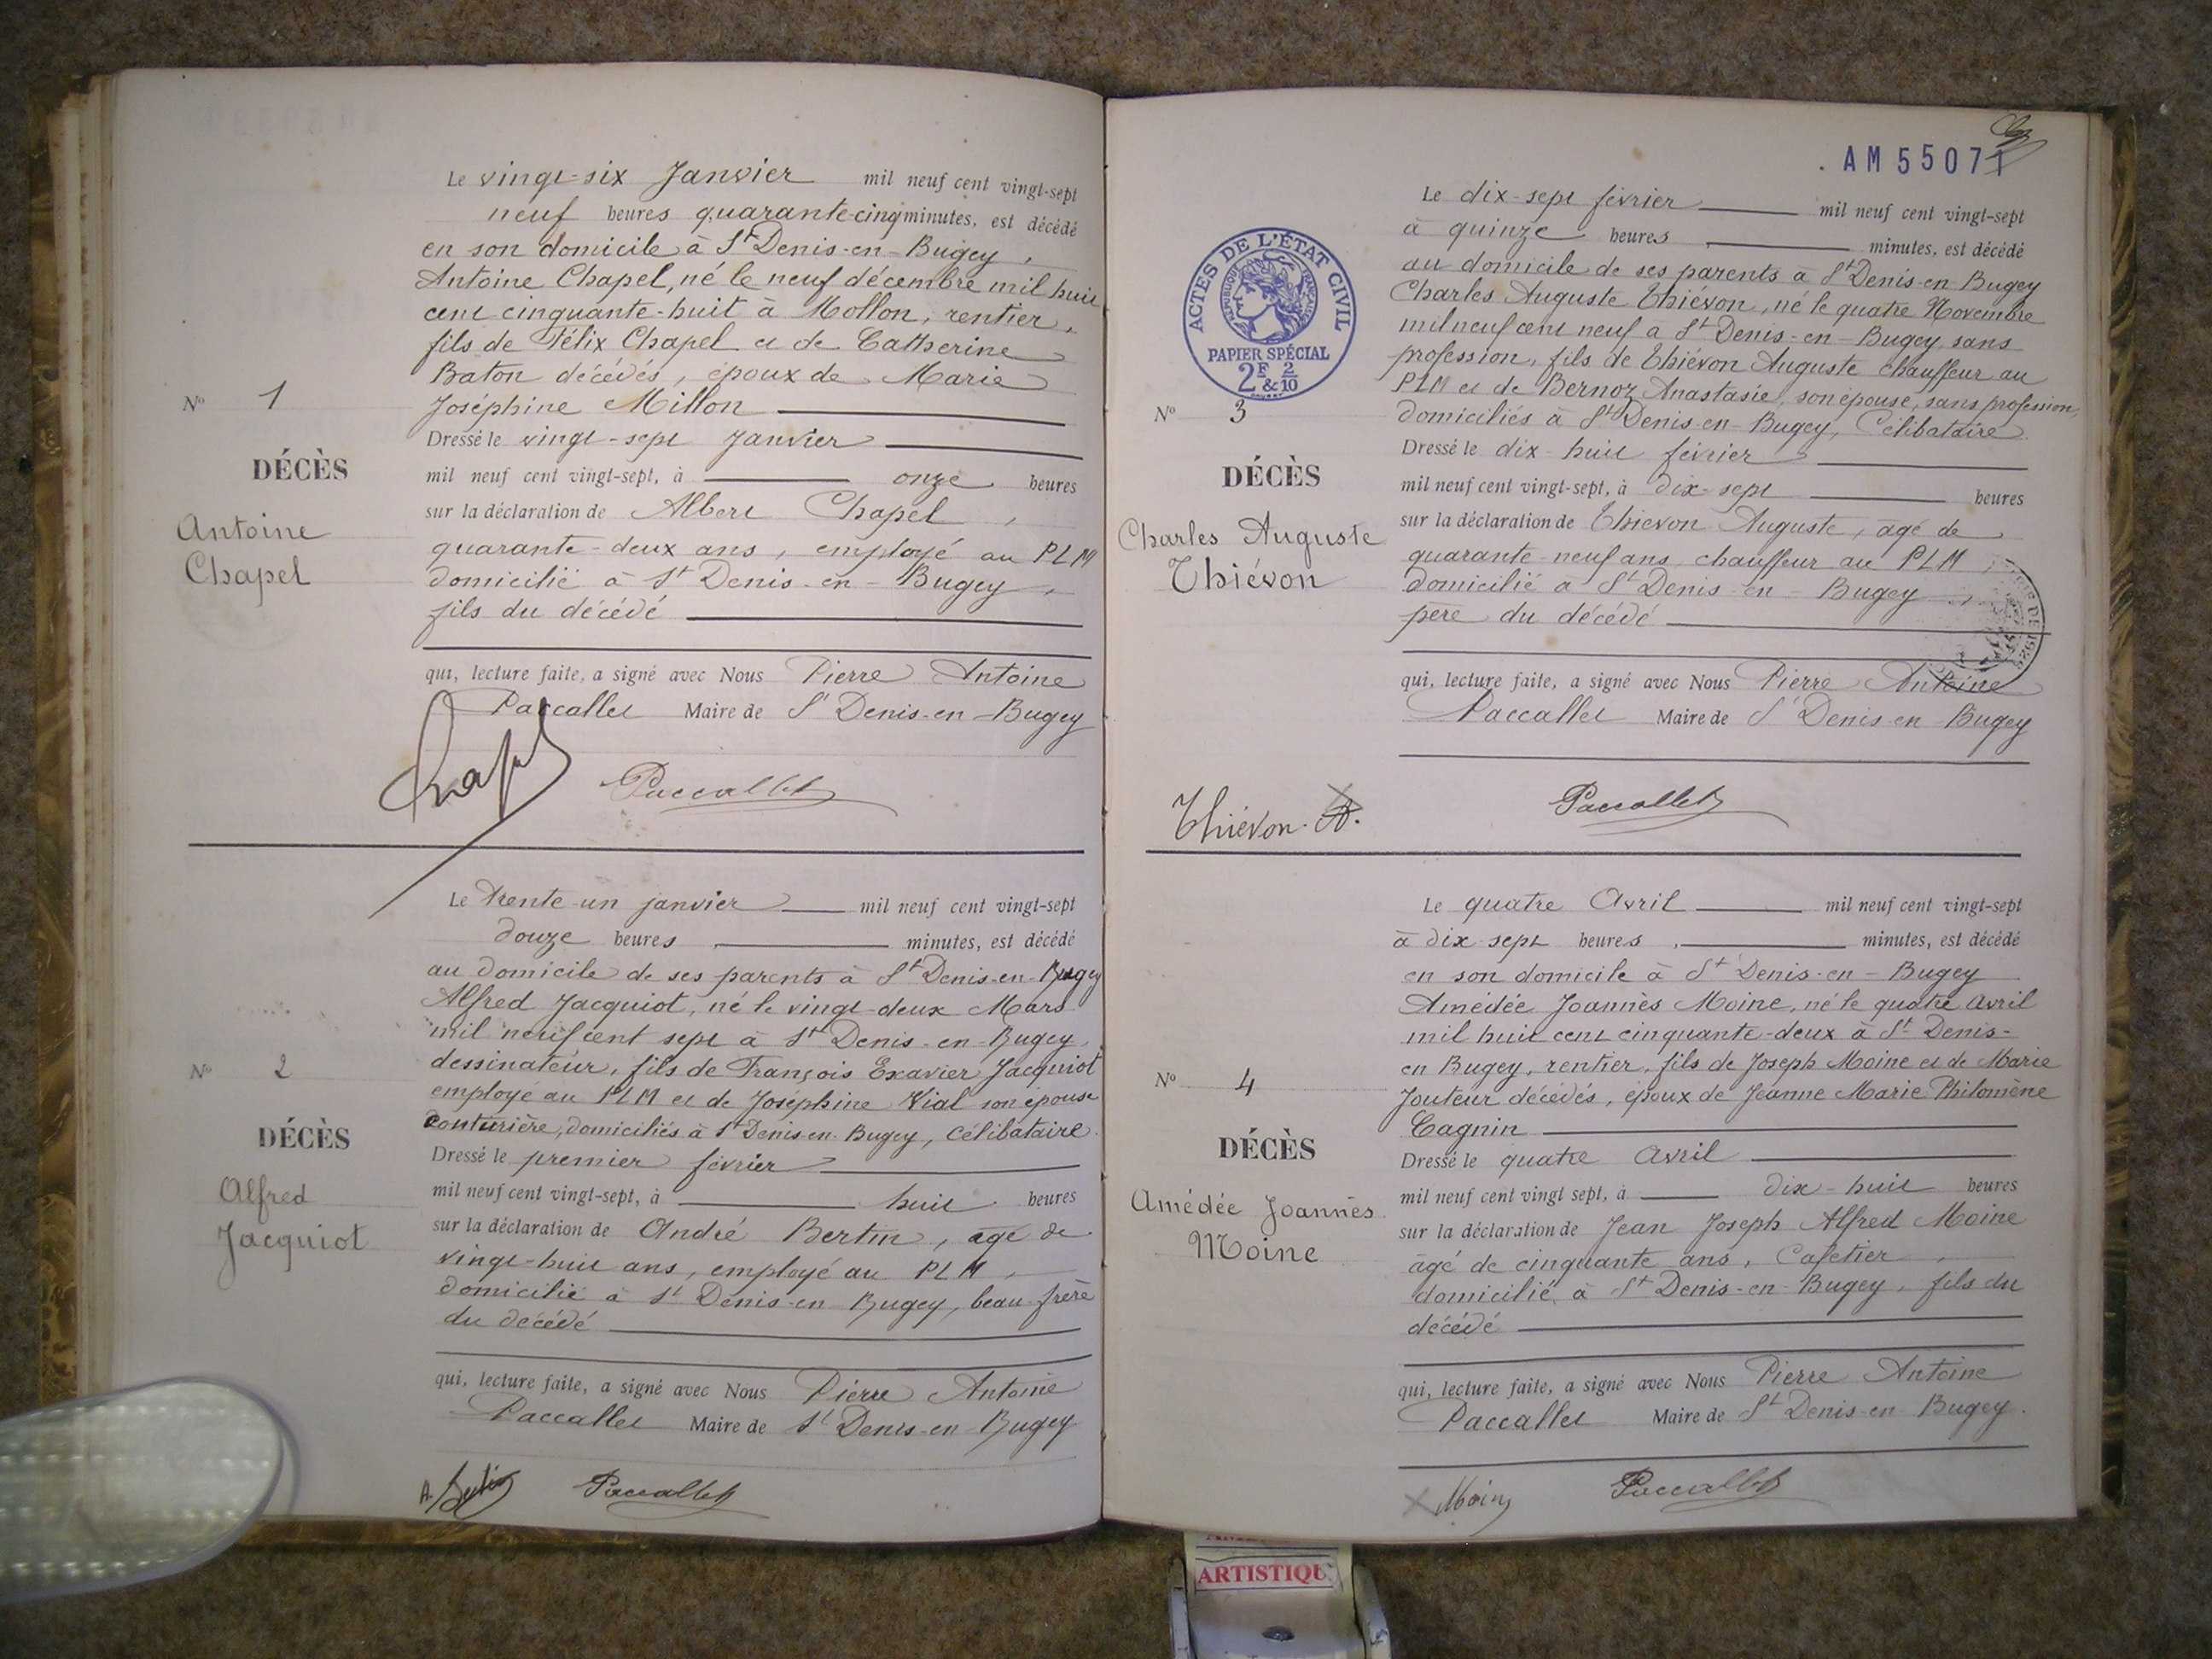 Le vingt-six Janvier mil neuf cent vingt-sept
neuf heures quarante-cinq minutes, est décédé
en son domicile à St Denis-en-Bugey,
Antoine Chapel, né le neuf décembre mil huit
cent cinquante-huit à Mollon, rentier,
fils de Félix Chapel et de Catherine
Baton décédés, époux de Marie
Joséphine Millon
No 1
DÉCÈS
Antoine
Chapel
Dressé le vingt-sept Janvier
mil neuf cent vingt-sept, à onze heures
sur la déclaration de Albert Chapel,
quarante-deux ans, employé au PLM
domicilié à St Denis-en-Bugey,
fils du décédé
qui, lecture faite, a signé avec Nous Pierre Antoine
Paccallet Maire de St Denis-en-Bugey
Chapel Paccallet
Le trente-un janvier mil neuf cent vingt-sept
douze heures, minutes, est décédé
au domicile de ses parents à St Denis-en-Bugey
Alfred Jacquiot, né le vingt-deux Mars
mil neuf cent sept à St Denis-en-Bugey,
dessinateur, fils de François Exavier Jacquiot
employé au PLM et de Joséphine Vial son épouse
couturière, domiciliés à St Denis-en-Bugey, célibataire.
No 2
DÉCÈS
Alfred
Jacquiot
Dressé le premier février
mil neuf cent vingt-sept, à huit heures
sur la déclaration de André Bertin, agé de
vingt-huit ans, employé au PLM,
domicilié à St Denis-en-Bugey, beau-frère
du décédé
qui, lecture faite, a signé avec Nous Pierre Antoine
Paccallet Maire de St Denis-en-Bugey
A. Bertin Paccallet
AM 55071
ACTES DE L'ÉTAT CIVIL
RÉPUBLIQUE FRANÇAISE
PAPIER SPÉCIAL
2F & 2/10
Le dix-sept février mil neuf cent vingt-sept
à quinze heures, minutes, est décédé
au domicile de ses parents à St Denis-en-Bugey
Charles Auguste Thiévon, né le quatre Novembre
mil neuf cent neuf à St Denis-en-Bugey, sans
profession, fils de Thiévon Auguste chauffeur au
PLM et de Bernoz Anastasie, son épouse, sans profession,
domiciliés à St Denis-en-Bugey, Célibataire
No 3
DÉCÈS
Charles Auguste
Thiévon
Dressé le dix-huit février
mil neuf cent vingt-sept, à dix-sept heures
sur la déclaration de Thievon Auguste, agé de
quarante-neuf ans, chauffeur au PLM
domicilié à St Denis-en-Bugey,
père du décédé
qui, lecture faite, a signé avec Nous Pierre Antoine
Paccallet Maire de St Denis-en-Bugey
Thiévon. A. Paccallet
Le quatre Avril mil neuf cent vingt-sept
à dix-sept heures, minutes, est décédé
en son domicile à St Denis-en-Bugey
Amédée Joannès Moine, né le quatre Avril
mil huit cent cinquante-deux à St Denis-
en Bugey, rentier, fils de Joseph Moine et de Marie
Jouteur décédés, époux de Jeanne Marie Philomène
Cagnin
No 4
DÉCÈS
Amédée Joannès
Moine
Dressé le quatre Avril
mil neuf cent vingt sept, à dix-huit heures
sur la déclaration de Jean Joseph Alfred Moine
âgé de cinquante ans, Cafetier,
domicilié à St Denis-en-Bugey, fils du
décédé
qui, lecture faite, a signé avec Nous Pierre Antoine
Paccallet Maire de St Denis-en-Bugey.
Moine Paccallet
ARTISTIQU